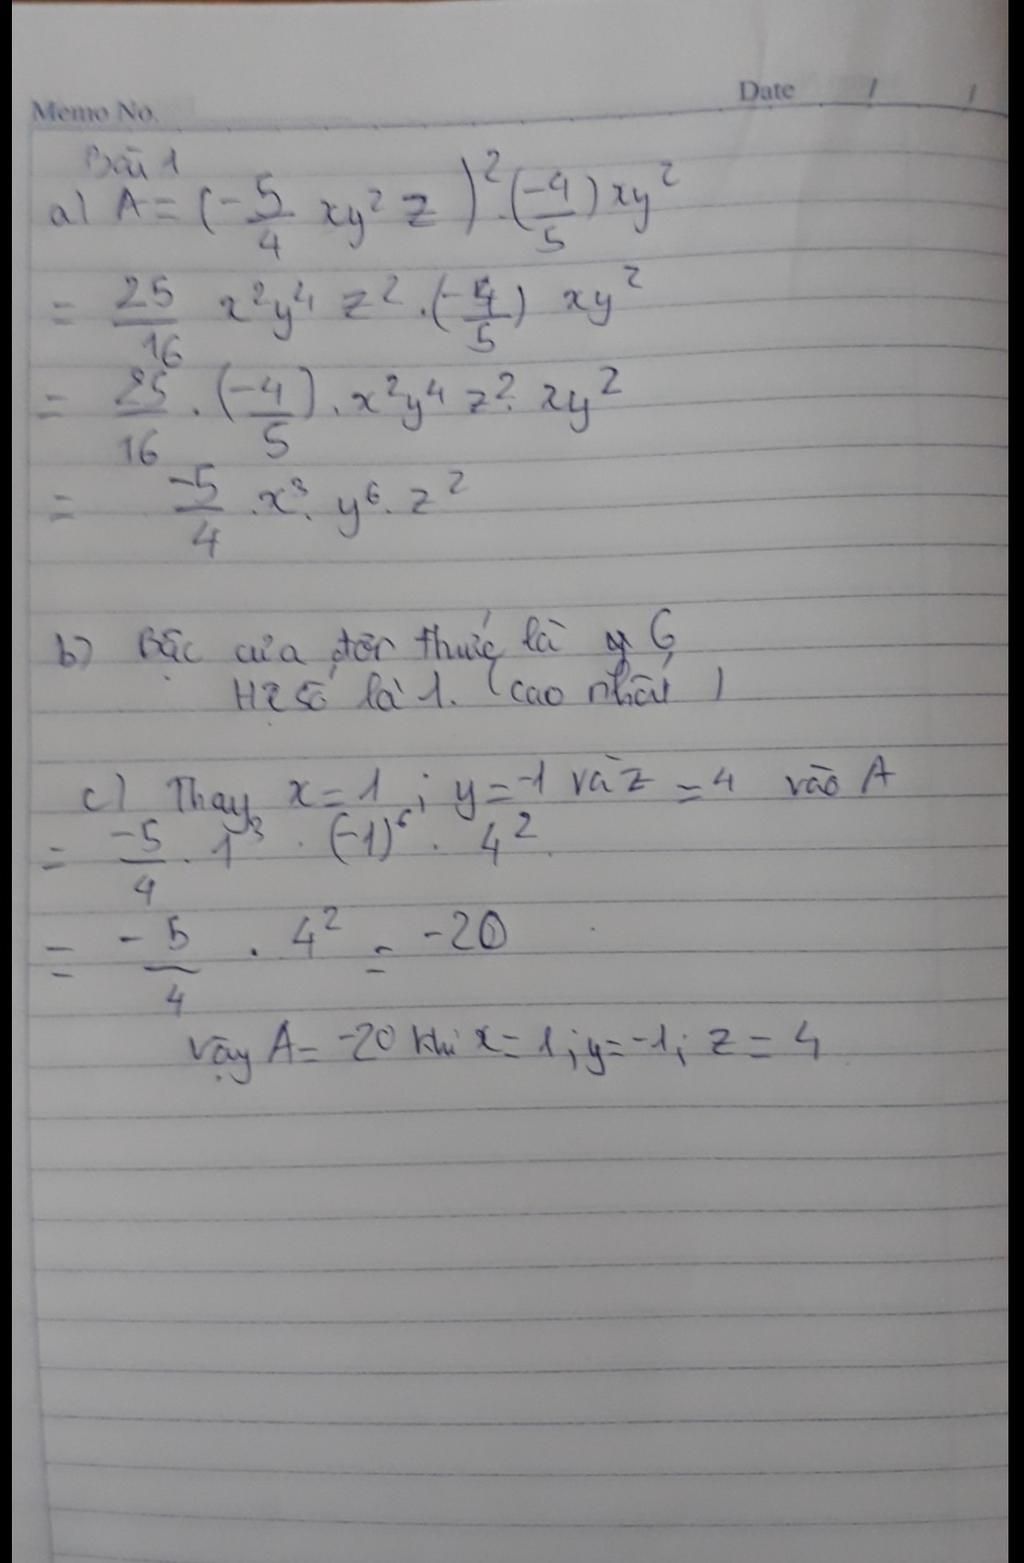 Memo No.
Date / /
Bài 1
a) A = (-5/4 xy² z)² . (-4/5) xy²
= 25/16 x²y⁴ z² . (-4/5) xy²
= 25/16 . (-4/5) . x²y⁴ z² . xy²
= -5/4 . x³ . y⁶ . z²
b) Bậc của đơn thức là 6
Hệ số là 1. (cao nhất)
c) Thay x = 1 ; y = -1 và z = 4 vào A
= -5/4 . 1³ . (-1)⁶ . 4².
= -5/4 . 4² = -20
Vậy A = -20 khi x = 1 ; y = -1 ; z = 4